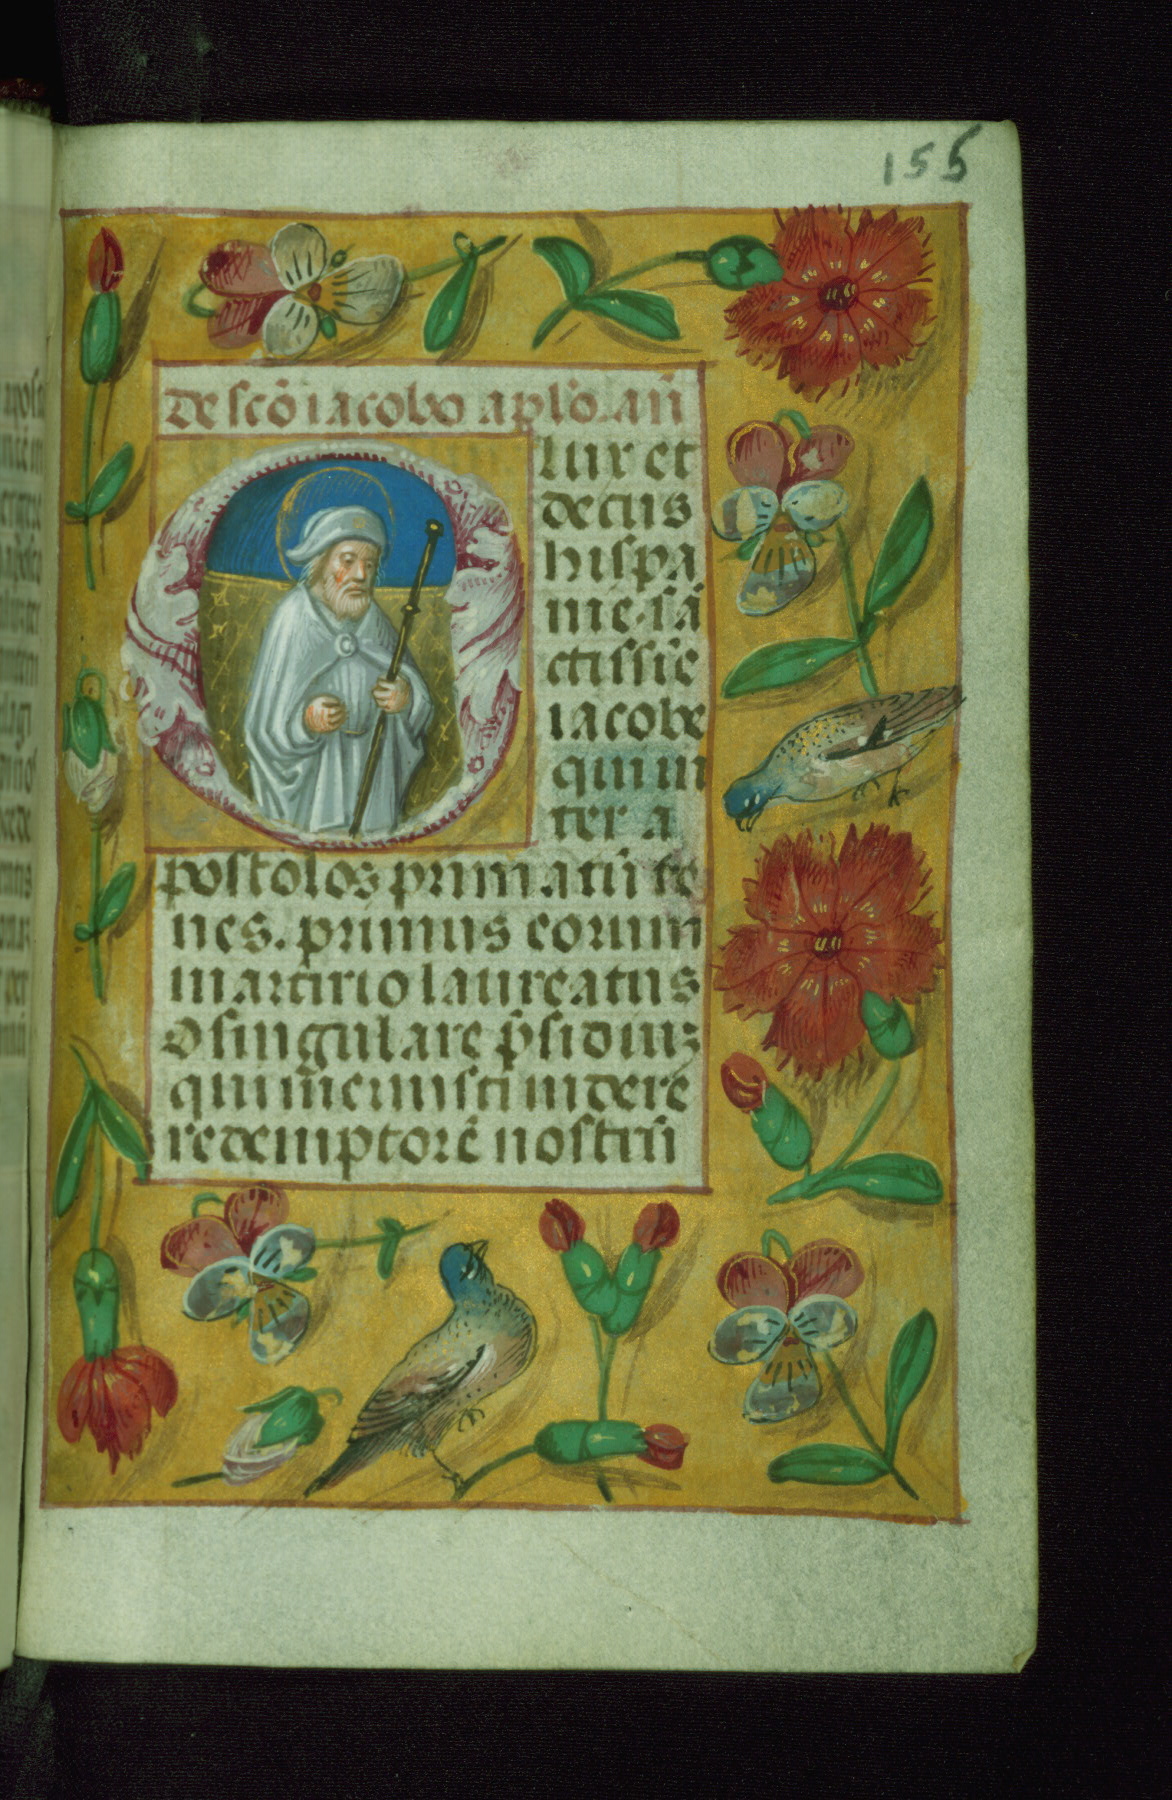 155
De scō iacobo aplo. an̄
lux et
decus
hispa
nie. sā
ctissīe
iacobe
qui in
ter a
postolos primatū te
nes. primus eorum
martirio laureatus
O singulare p̄sidiuꝫ
qui meruisti videre
redemptorē nostrū